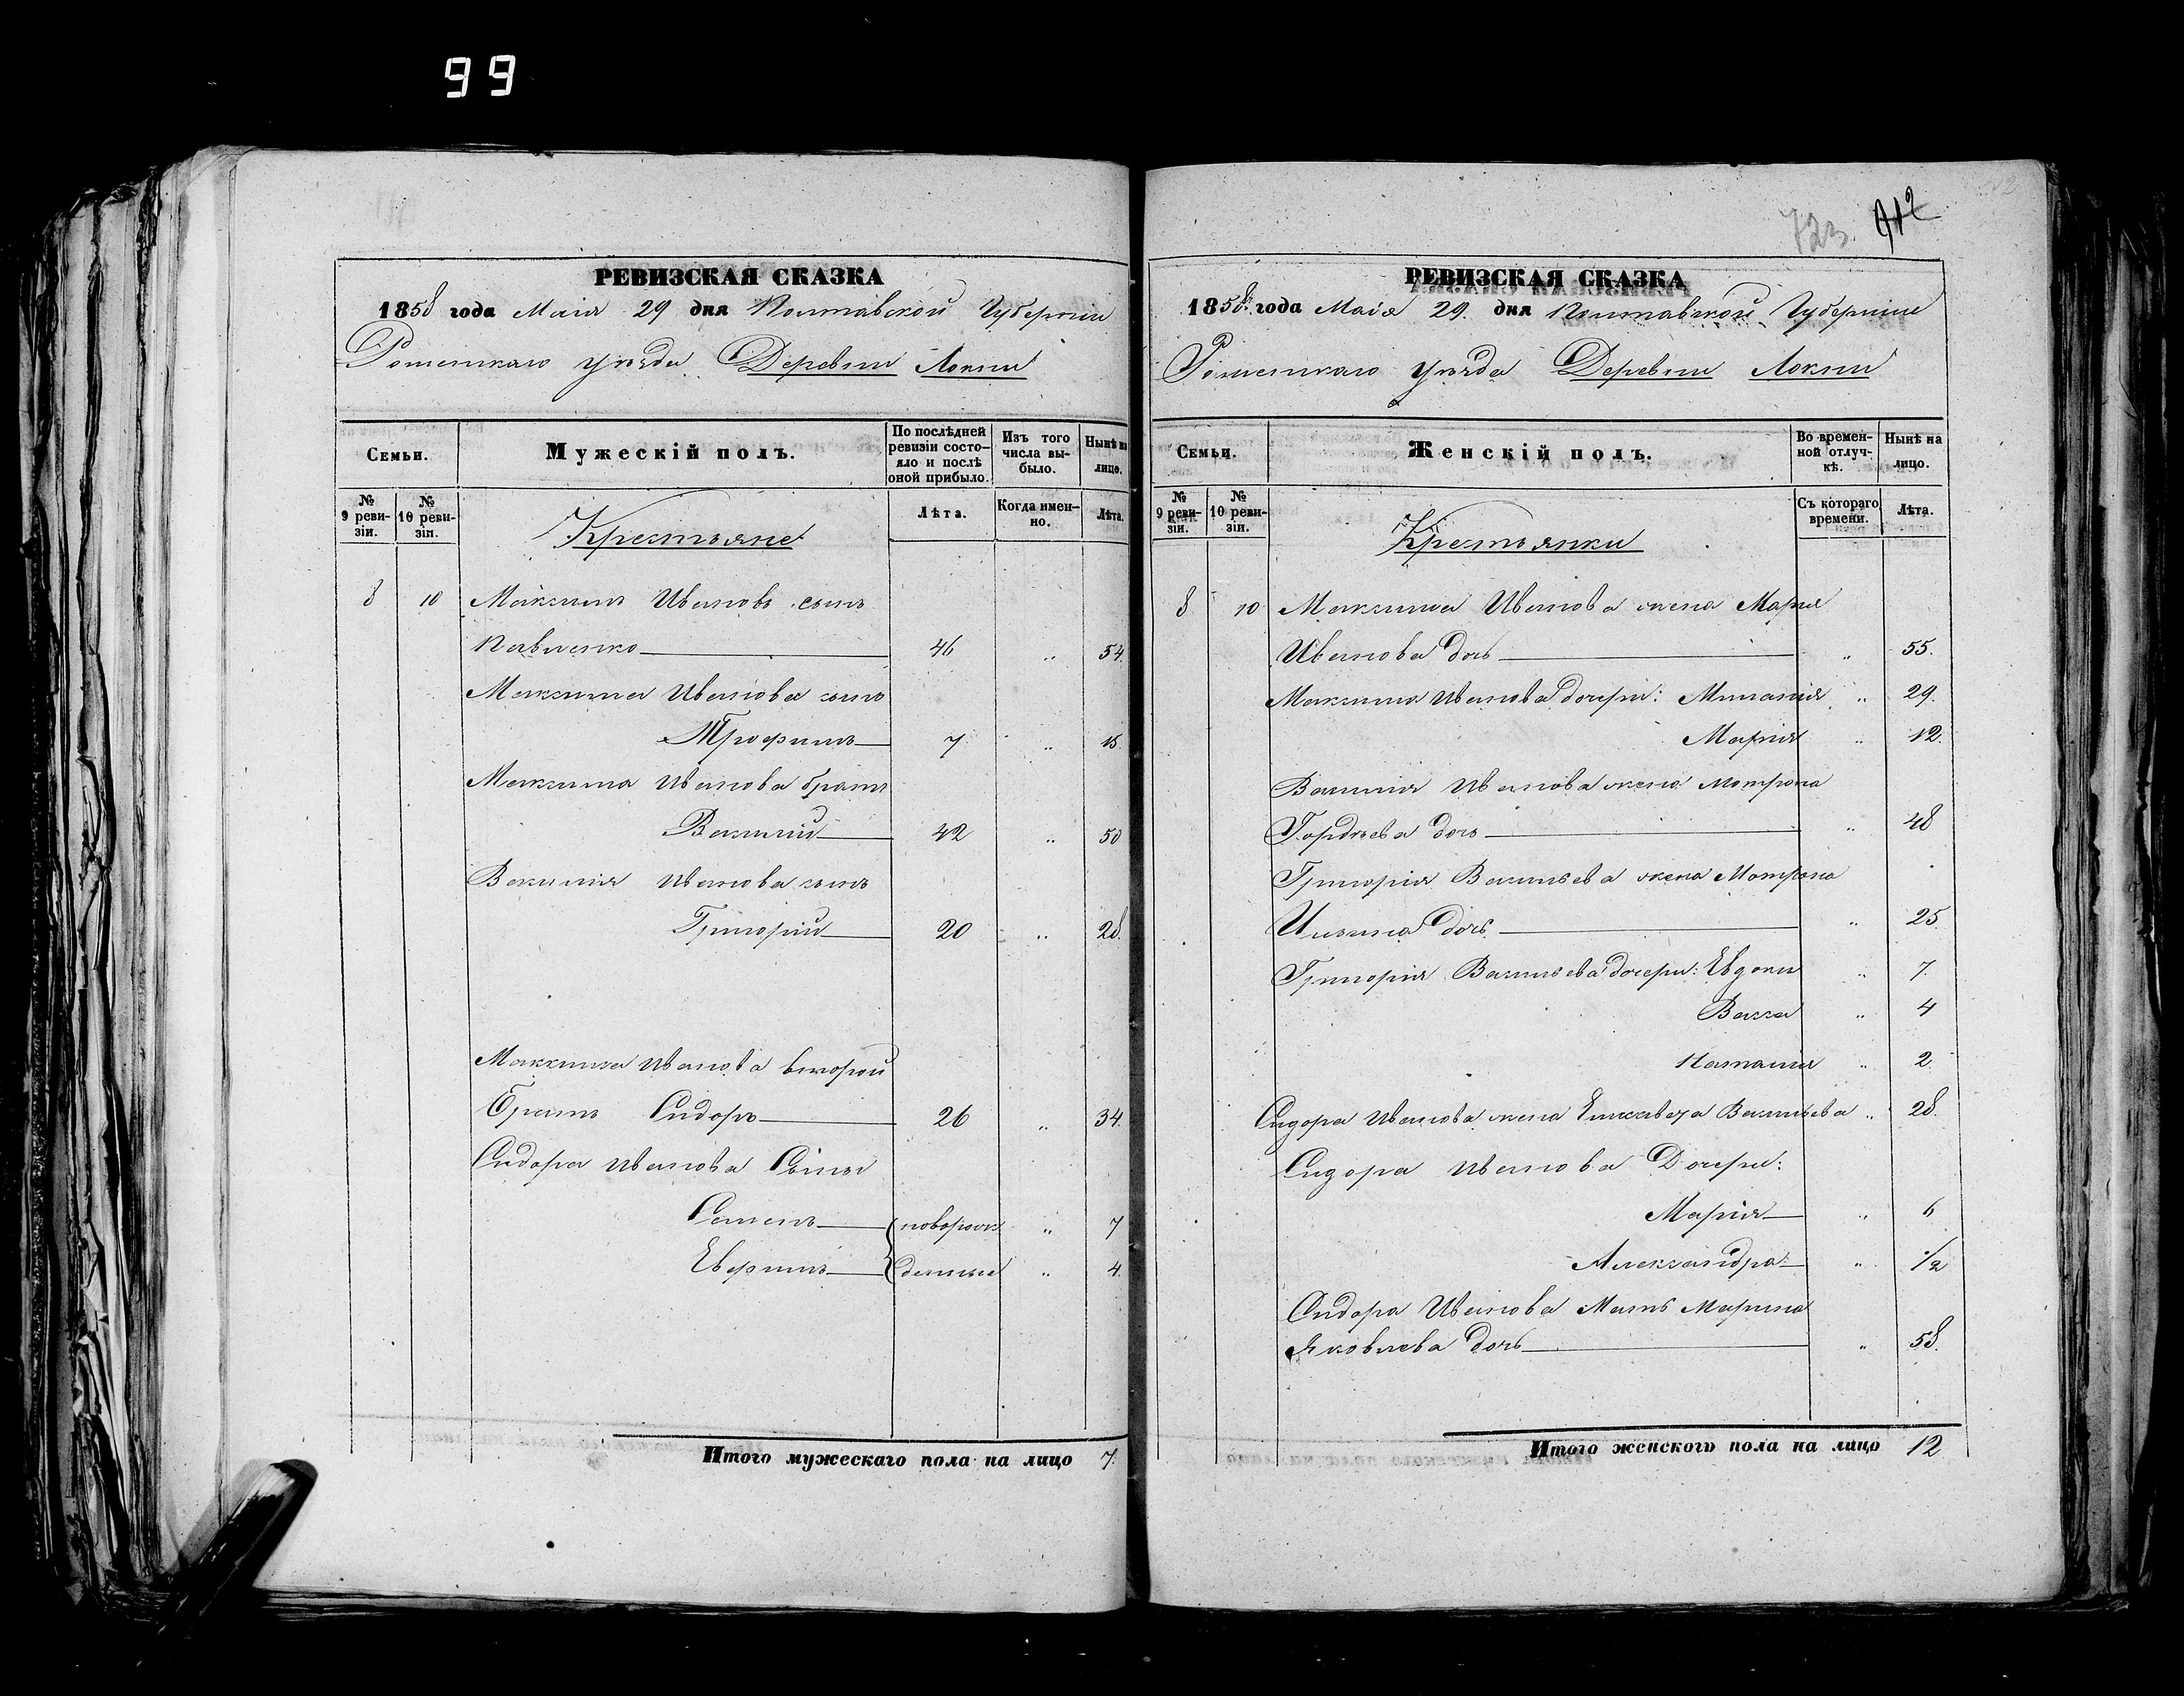 99
РЕВИЗСКАЯ СКАЗКА
1858 года Маія 29 дня Полтавской Губерніи
Роменскаго уѣзда Деревни Локни
Семьи.
Мужескій полъ.
По послѣдней ревизіи состояло и послѣ оной прибыло.
Изъ того числа выбыло.
Нынѣ на лицо.
№ 9 ревизіи.
№ 10 ревизіи.
Крестьяне
Лѣта.
Когда именно.
Лѣта.
8 10 Максимъ Ивановъ сынъ
Павленко 46 „ 54.
Максима Иванова сынъ
Трофимъ 7 „ 15.
Максима Иванова братъ
Василий 42 „ 50
Василия Иванова сынъ
Григорий 20 „ 28.
Максима Иванова второй
Братъ Сидоръ 26 „ 34.
Сидора Иванова Сыны
Семенъ новорож „ 7
денные „ 4.
Итого мужескаго пола на лицо 7.
723. 912
РЕВИЗСКАЯ СКАЗКА
1858 года Маія 29. дня Полтавской Губерніи
Роменскаго уѣзда Деревни Локни
Семьи.
Женскій полъ.
Во временной отлучкѣ.
Нынѣ на лицо.
№ 9 ревизіи.
№ 10 ревизіи.
Крестьянки
Съ котораго времени.
Лѣта.
8 10 Максима Иванова жена Мария
Иванова дочь „ 55.
Максима Иванова дочери: Милания „ 29.
Мария „ 12.
Василия Иванова жена Мотрона
Гордѣева дочь „ 48
Григория Васильева жена Мотрона
Ильина дочь „ 25.
Григория Васильева дочери: Евдоки „ 7.
Васса „ 4
Наталия „ 2.
Сидора Иванова жена Елисавета Васильева „ 28.
Сидора Иванова Дочери:
Мария „ 6
Александра „ 1/2
Сидора Иванова Мать Марина
Яковлева дочь „ 58.
Итого женского пола на лицо 12